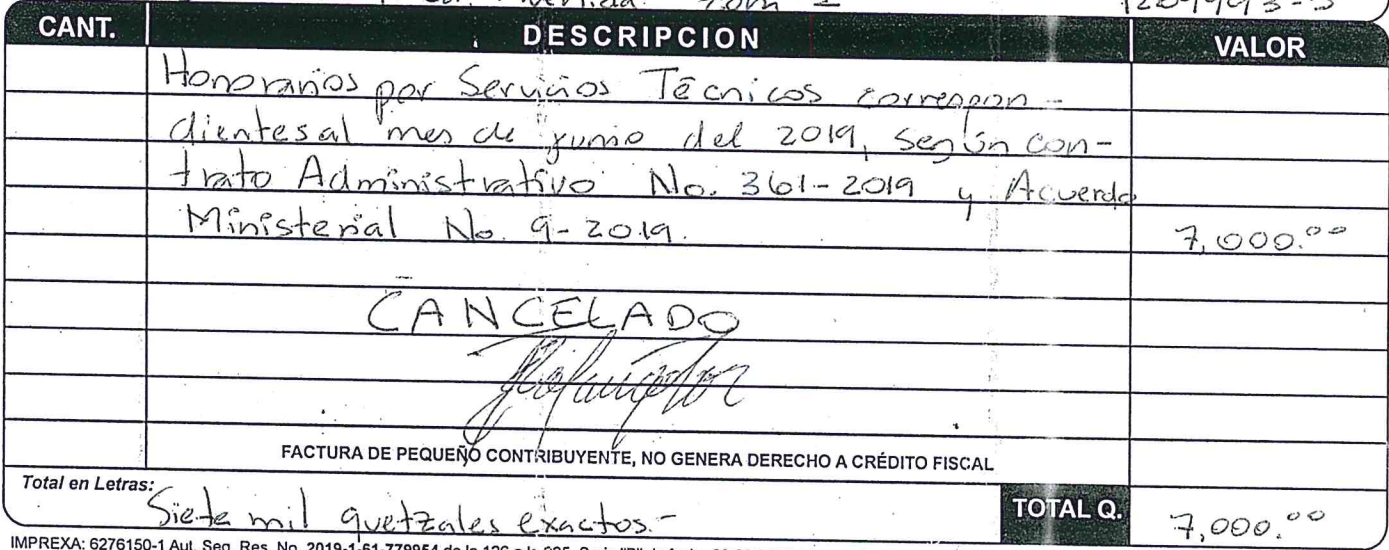 Zona 1209993-5
CANT. DESCRIPCION VALOR
Honorarios por Servicios Técnicos correspon-
dientes al mes de junio del 2019, según con-
trato Administrativo No. 361-2019 y Acuerdo
Ministerial No. 9-2019. 7,000.00
CANCELADO
FACTURA DE PEQUEÑO CONTRIBUYENTE, NO GENERA DERECHO A CRÉDITO FISCAL
Total en Letras: Siete mil quetzales exactos.- TOTAL Q. 7,000.00
IMPREXA: 6276150-1 Aut. Seg. Res. No. 2019-1-61-779954